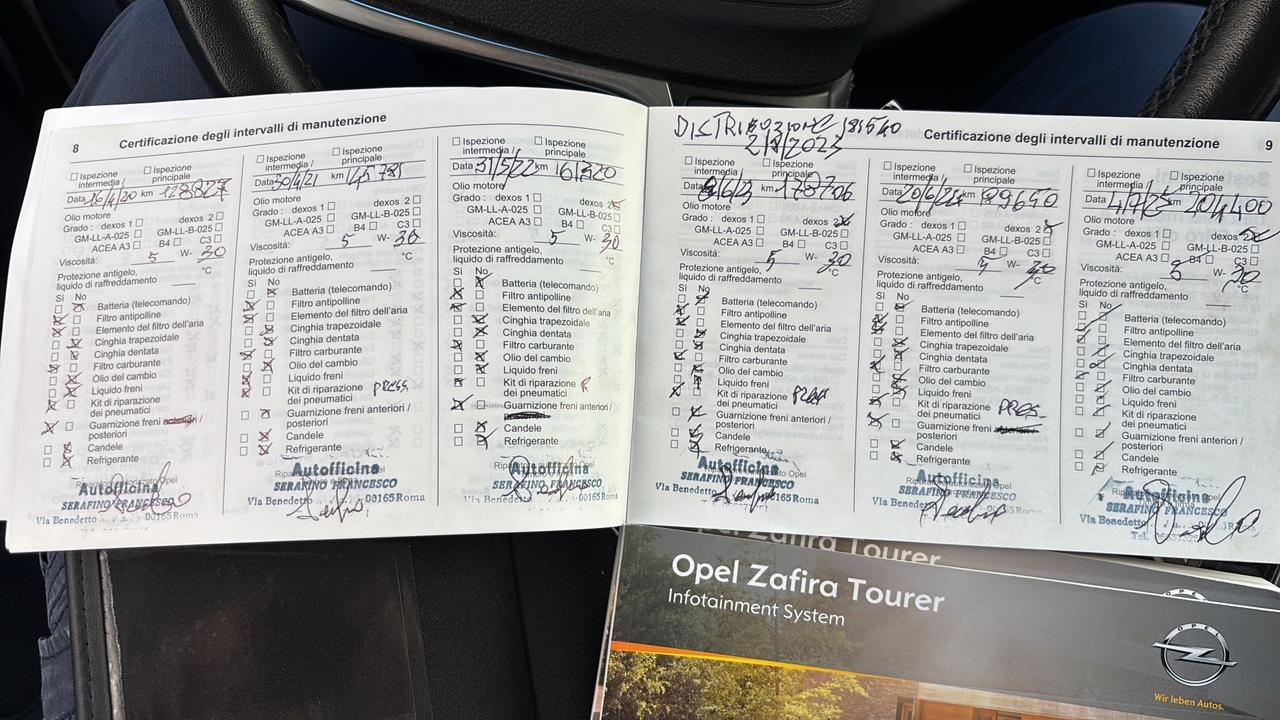 8 Certificazione degli intervalli di manutenzione
Ispezione intermedia / Ispezione principale
Data km 128827
Olio motore
Grado: dexos 1 dexos 2
GM-LL-A-025 GM-LL-B-025
ACEA A3 B4 C3
Viscosità: 5 W- 30
Protezione antigelo, °C
liquido di raffreddamento
Si No
Batteria (telecomando)
Filtro antipolline
Elemento del filtro dell'aria
Cinghia trapezoidale
Cinghia dentata
Filtro carburante
Olio del cambio
Liquido freni
Kit di riparazione
dei pneumatici
Guarnizione freni /
posteriori
Candele
Refrigerante
Autofficina
SERAFINO FRANCESCO
Via Benedetto 00165 Roma
Ispezione intermedia / Ispezione principale
Data 30/4/21 km
Olio motore
Grado: dexos 1 dexos 2
GM-LL-A-025 GM-LL-B-025
ACEA A3 B4 C3
Viscosità: 5 W- 30
Protezione antigelo, °C
liquido di raffreddamento
Si No
Batteria (telecomando)
Filtro antipolline
Elemento del filtro dell'aria
Cinghia trapezoidale
Cinghia dentata
Filtro carburante
Olio del cambio
Liquido freni
Kit di riparazione PRES.
dei pneumatici
Guarnizione freni anteriori /
posteriori
Candele
Refrigerante
Autofficina
SERAFINO FRANCESCO
Via Benedetto 00165 Roma
Ispezione intermedia / Ispezione principale
Data 31/5/22 km
Olio motore
Grado: dexos 1 dexos 2
GM-LL-A-025 GM-LL-B-025
ACEA A3 B4 C3
Viscosità: 5 W- 30
Protezione antigelo, °C
liquido di raffreddamento
Si No
Batteria (telecomando)
Filtro antipolline
Elemento del filtro dell'aria
Cinghia trapezoidale
Cinghia dentata
Filtro carburante
Olio del cambio
Liquido freni
Kit di riparazione
dei pneumatici
Guarnizione freni anteriori /
posteriori
Candele
Refrigerante
Autofficina
SERAFINO FRANCESCO
Via Benedetto 00165 Roma
DISTRIBUZIONE 181540
Certificazione degli intervalli di manutenzione 9
Ispezione intermedia / Ispezione principale
Data km 178706
Olio motore
Grado: dexos 1 dexos 2
GM-LL-A-025 GM-LL-B-025
ACEA A3 B4 C3
Viscosità: 5 W- 30
Protezione antigelo, °C
liquido di raffreddamento
Si No
Batteria (telecomando)
Filtro antipolline
Elemento del filtro dell'aria
Cinghia trapezoidale
Cinghia dentata
Filtro carburante
Olio del cambio
Liquido freni
Kit di riparazione
dei pneumatici
Guarnizione freni anteriori /
posteriori
Candele
Refrigerante
Autofficina
SERAFINO FRANCESCO
Via Benedetto 00165 Roma
Ispezione intermedia / Ispezione principale
Data 20/6/24 km
Olio motore
Grado: dexos 1 dexos 2
GM-LL-A-025 GM-LL-B-025
ACEA A3 B4 C3
Viscosità: W-
Protezione antigelo, °C
liquido di raffreddamento
Si No
Batteria (telecomando)
Filtro antipolline
Elemento del filtro dell'aria
Cinghia trapezoidale
Cinghia dentata
Filtro carburante
Olio del cambio
Liquido freni
Kit di riparazione PRES.
dei pneumatici
Guarnizione freni /
posteriori
Candele
Refrigerante
Autofficina
SERAFINO FRANCESCO
Via Benedetto 00165 Roma
Ispezione intermedia / Ispezione principale
Data 4/7/25 km 204400
Olio motore
Grado: dexos 1 dexos 2
GM-LL-A-025 GM-LL-B-025
ACEA A3 B4 C3
Viscosità: 5 W- 30
Protezione antigelo, °C
liquido di raffreddamento
Si No
Batteria (telecomando)
Filtro antipolline
Elemento del filtro dell'aria
Cinghia trapezoidale
Cinghia dentata
Filtro carburante
Olio del cambio
Liquido freni
Kit di riparazione
dei pneumatici
Guarnizione freni anteriori /
posteriori
Candele
Refrigerante
Autofficina
SERAFINO FRANCESCO
Via Benedetto Roma
Opel Zafira Tourer
Infotainment System
OPEL
Wir leben Autos.